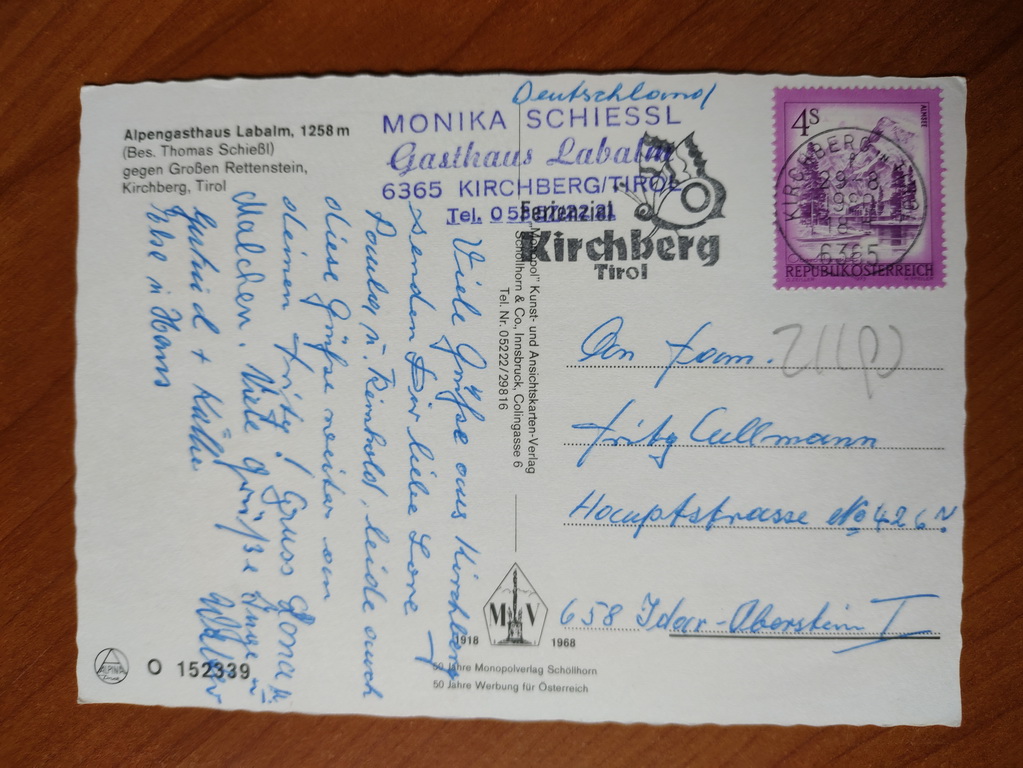 Alpengasthaus Labalm, 1258 m
(Bes. Thomas Schießl)
gegen Großen Rettenstein,
Kirchberg, Tirol
Deutschland
MONIKA SCHIESSL
Gasthaus Labalm
6365 KIRCHBERG/TIROL
Tel. 0 53 57/22 81
Ferienziel
Kirchberg
Tirol
4S
ALMSEE
KIRCHBERG
6365
REPUBLIK ÖSTERREICH
Viele Grüße aus Kirchberg
senden Dir liebe Lore
diese Grüße weiter an
deinen Fritz! Gruss
Malchen. Viele Grüße
"Monopol" Kunst- und Ansichtskarten-Verlag
Schöllhorn & Co., Innsbruck, Colingasse 6
Tel. Nr. 05222/29816
An Fam.
Fritz Cullmann
Hauptstrasse No 426 N
658 Idar-Oberstein I
M V
1918 1968
50 Jahre Monopolverlag Schöllhorn
50 Jahre Werbung für Österreich
ALPINA
O 152339